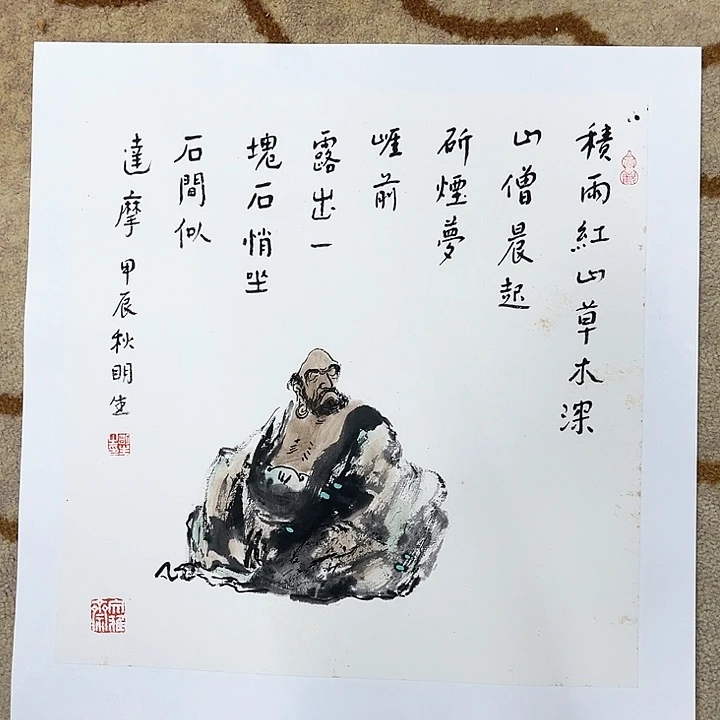 積雨紅山草木深
山僧晨起
斫煙夢
崕前
露出一
塊石悄坐
石間似
達摩 甲辰秋明生